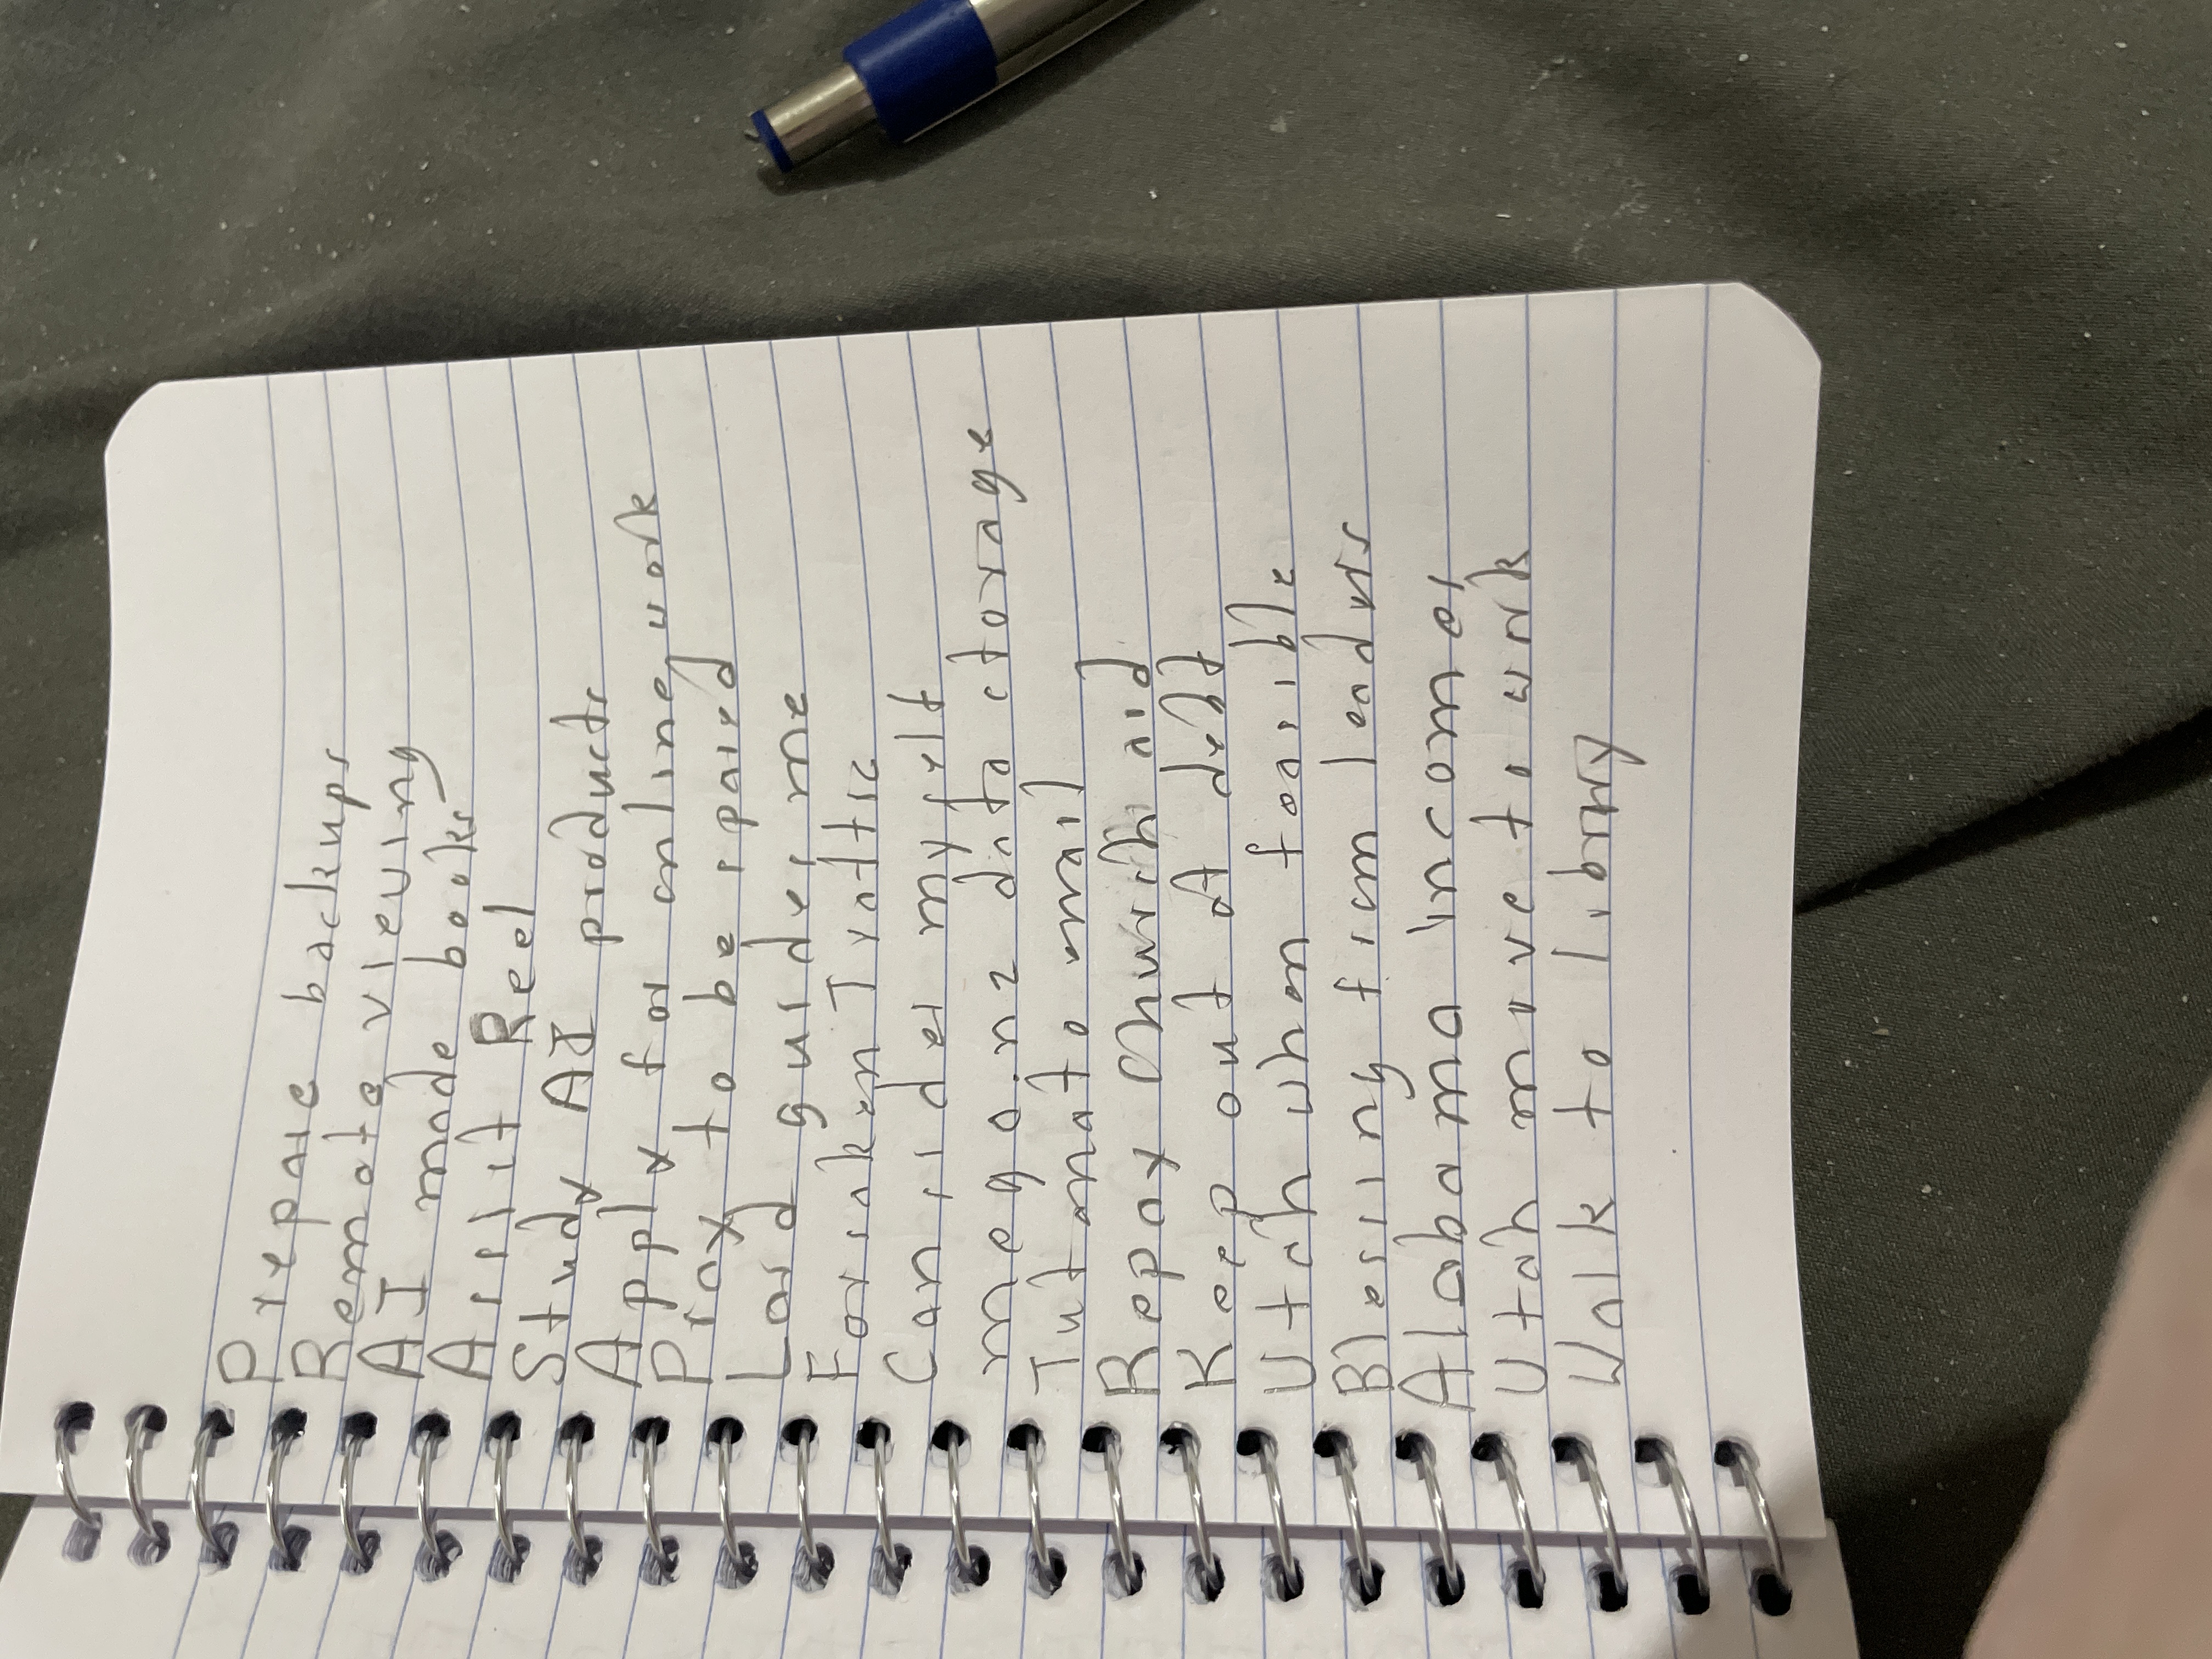 Prepare backups
Remote viewing
AI mode books
Assist Reel
Study AI products
Apply for online work
Pray to be spared
Lord guides me
Forsaken Tyoftie
Consider myself
mego.nz data storage
Tutanota mail
Repay Church aid
Keep out of debt
Utah when feasible
Blessing fism loadrs
Alabama income,
Utah move to wrk
Walk to libry